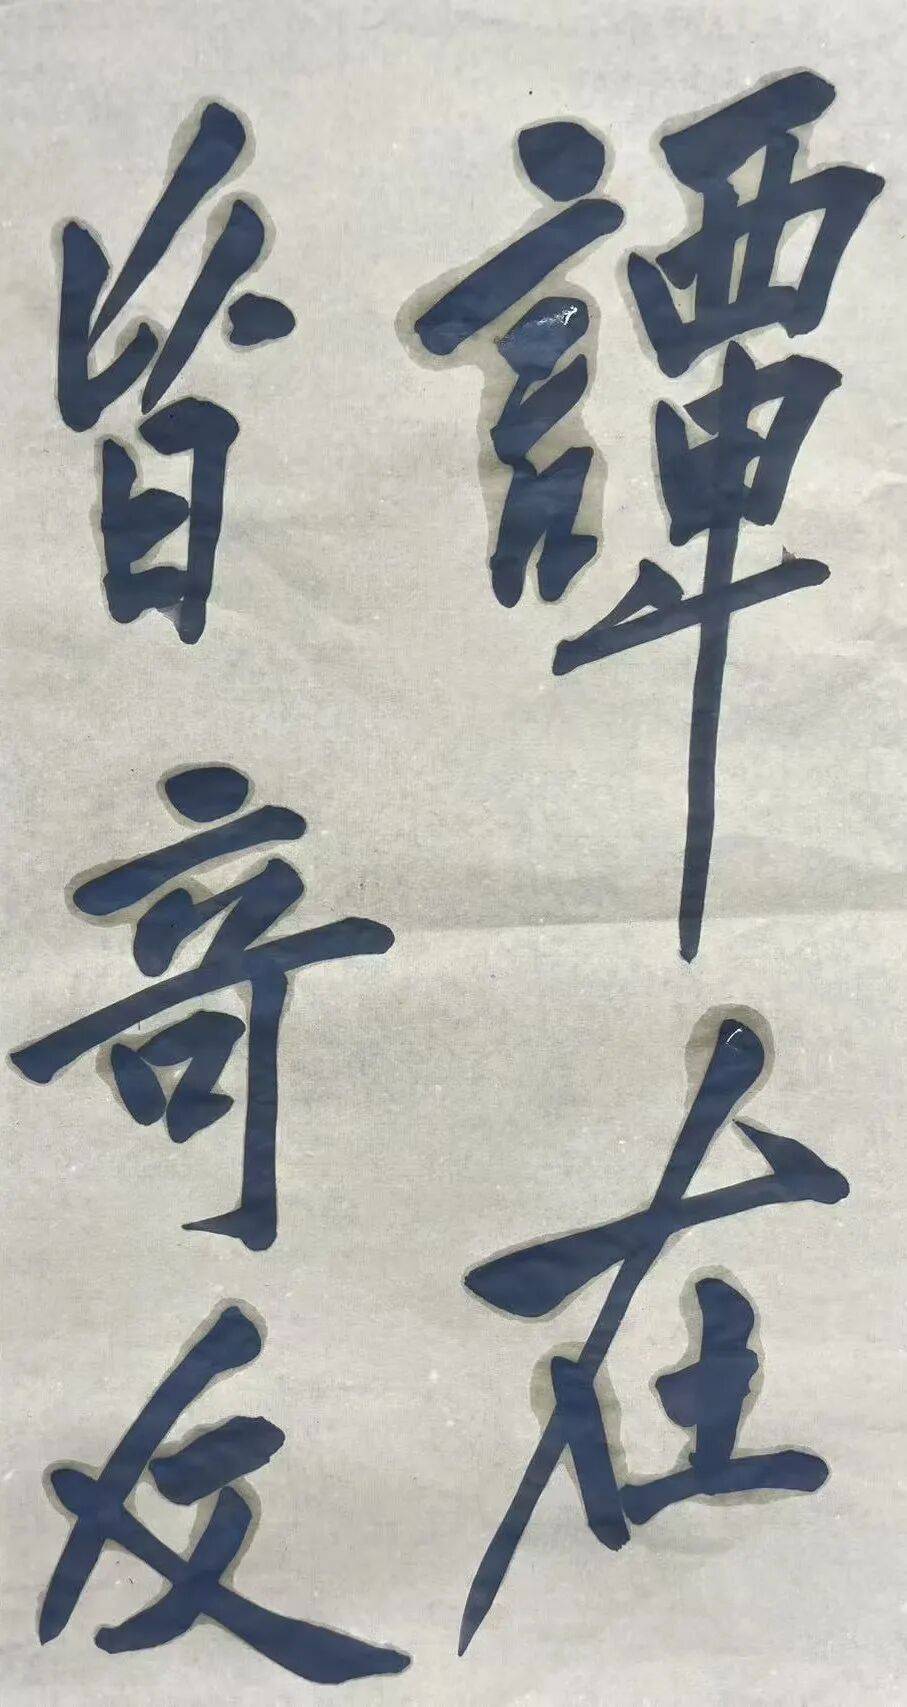 譚在
皆奇友